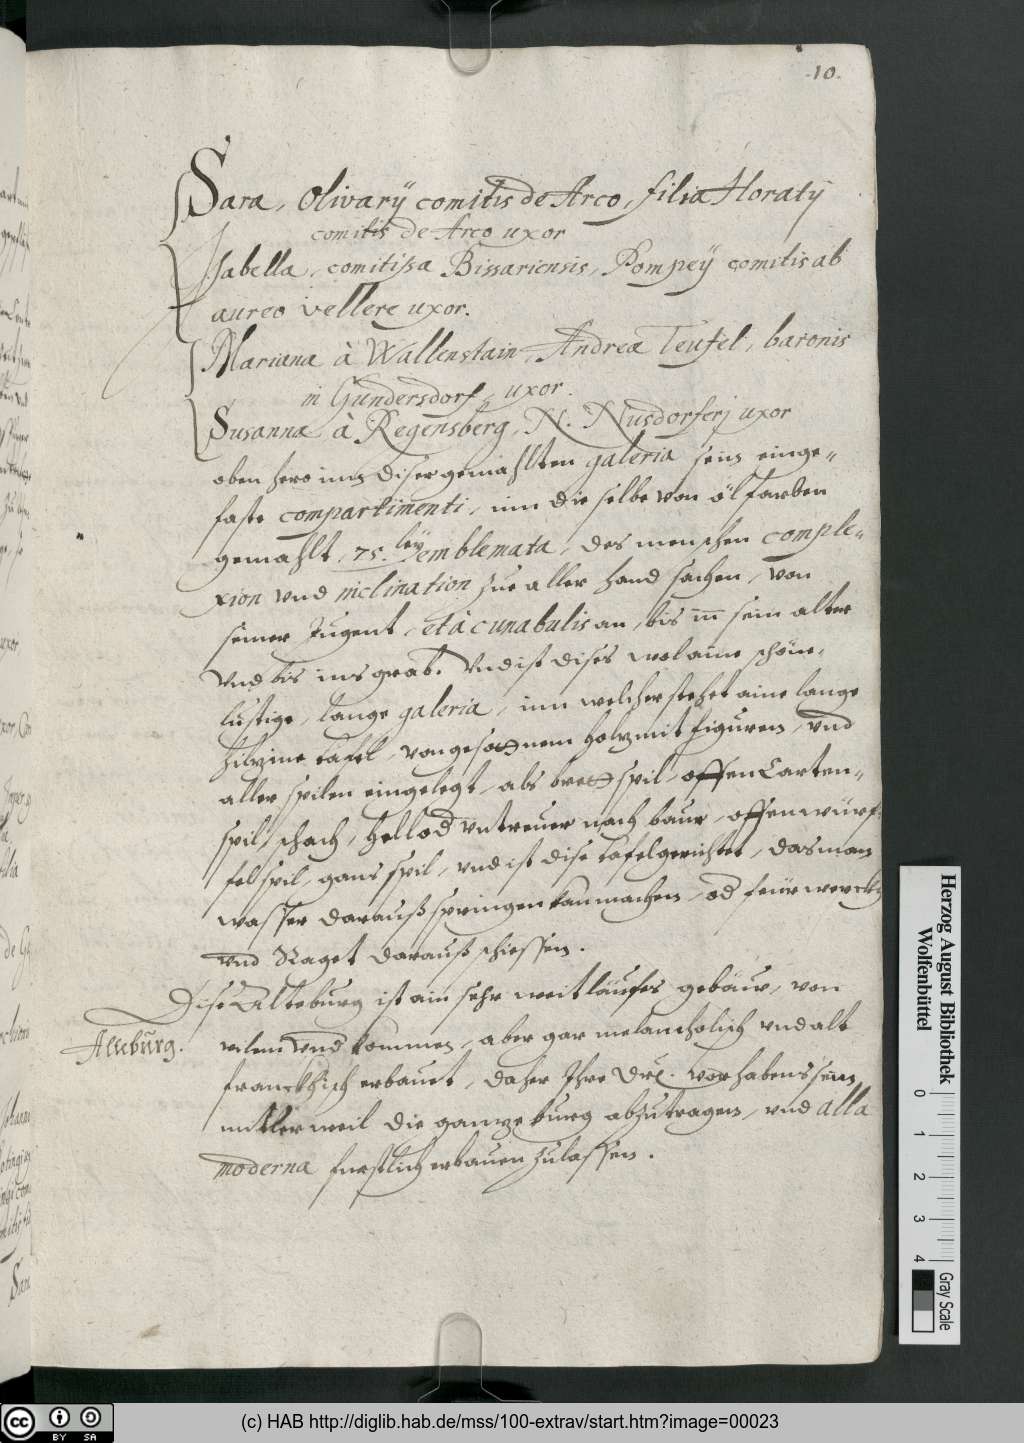 10.
Sara, Olivarÿ comitis de Arco, filia Horatÿ
comitis de Arco uxor
Isabella, comitißa Bissariensis, Pompeÿ comitis ab
aureo vellere uxor.
Mariana à Wallenstain, Andreæ Teufel, baronis
in Gundersdorf, uxor.
Susanna à Regensberg, N. Nusdorferj uxor
oben hero inn diser gemahlten galeria sein einge-
faste compartimenti, inn die selbe von ölfarben
gemahlt, 75. leÿ emblemata, des menschen comple-
xion vnd inclination zue aller hand sachen, von
seiner Jugent, et à cunabulis an, bis in sein alter
vnd bis ins grab. Vnd ist dises wol aine schöne,
lustige, lange galeria, inn welcher stehet aine lange
hilzine tafel, von gesottnem holz mit figuren, vnd
aller spilen eingelegt, als brettspil, offen Carten-
spil, schach, vntreuer nachbaur, offenwürf-
felspil, gans spil, vnd ist dise tafel gerichtet, das man
wasser darauß springen kan machen, od feürwerckh
vnd Raget darauß schiessen.
Dise Alteburg ist ain sehr weitläufes gebäuw, von
vilem vnd kommen, aber gar melancholisch vnd alt
Alteburg.
franckhisch erbauet, daher Ihre Drl. vorhabens sein
mitler weil die ganze burg abzutragen, vnd alla
moderna furstlich erbauen zulassen.
Herzog August Bibliothek
Wolfenbüttel
0 1 2 3 4
Gray Scale
cc BY SA
(c) HAB http://diglib.hab.de/mss/100-extrav/start.htm?image=00023